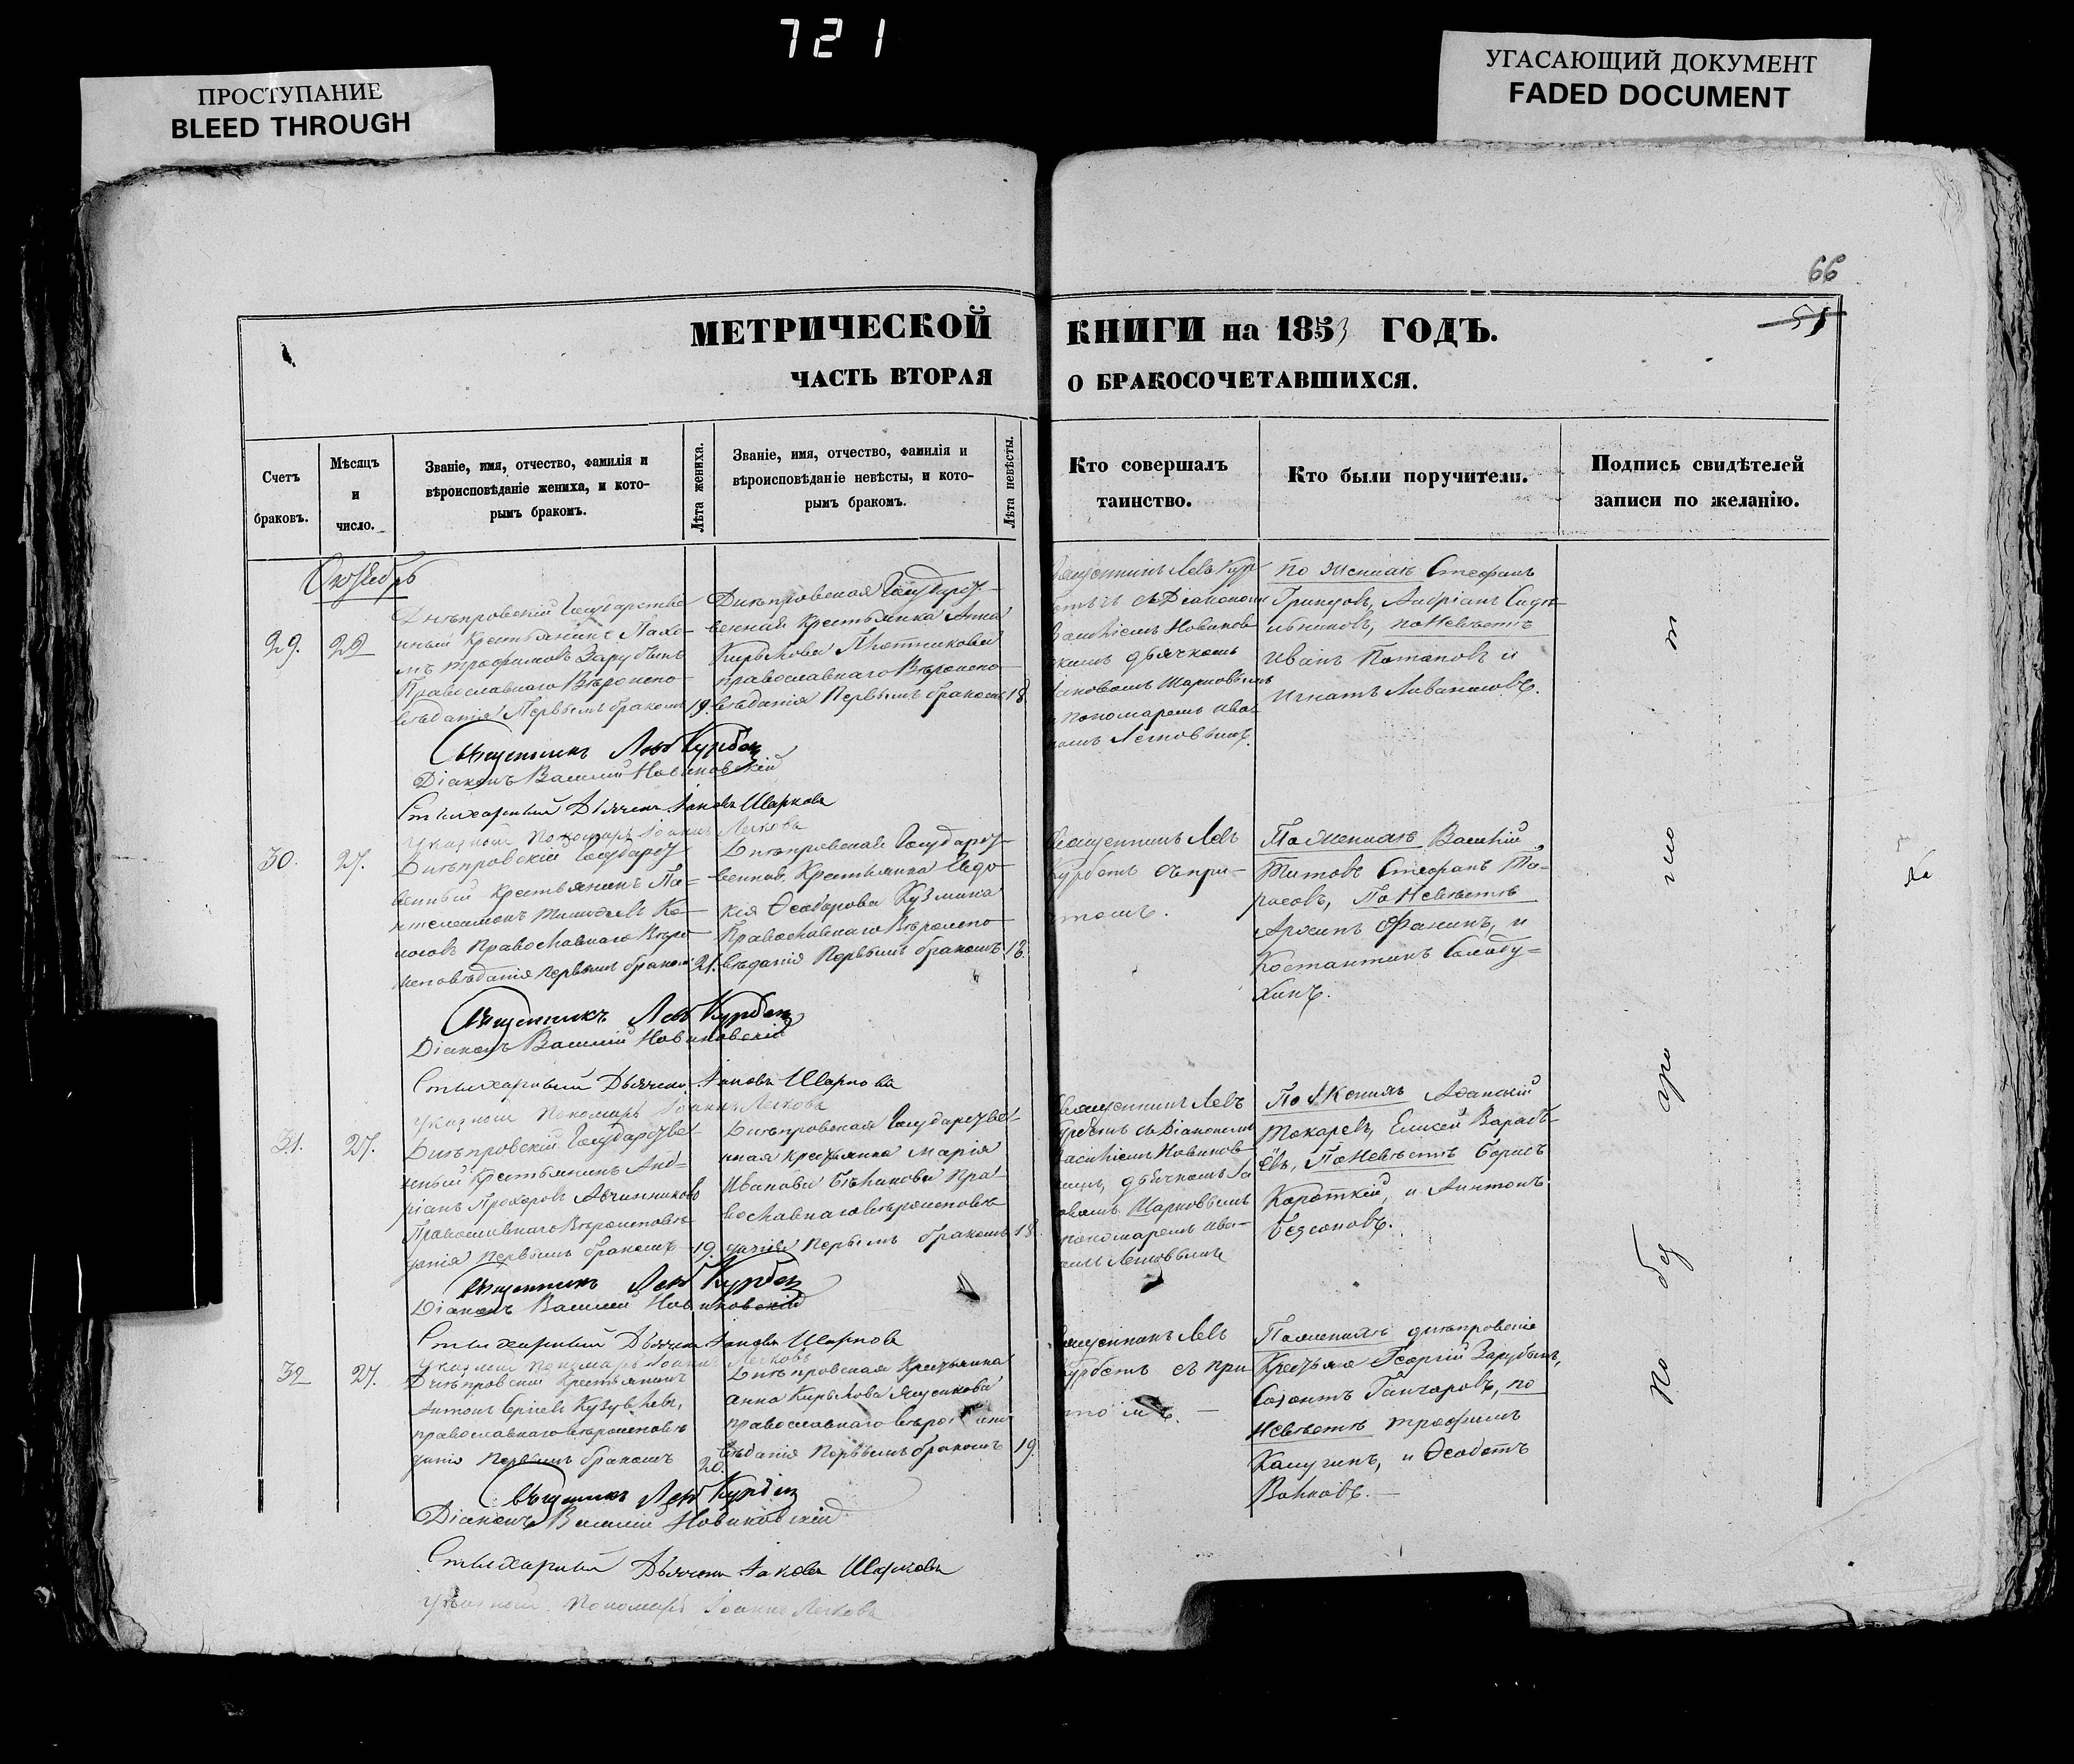 721
ПРОСТУПАНИЕ
BLEED THROUGH
УГАСАЮЩИЙ ДОКУМЕНТ
FADED DOCUMENT
66
51
МЕТРИЧЕСКОЙ
ЧАСТЬ ВТОРАЯ
КНИГИ на 1853 ГОДЪ.
О БРАКОСОЧЕТАВШИХСЯ.
Счетъ
браковъ.
Мѣсяцъ
и
число.
Званіе, имя, отчество, фамилія и
вѣроисповѣданіе жениха, и кото-
рымъ бракомъ.
Лѣта жениха.
Званіе, имя, отчество, фамилія и
вѣроисповѣданіе невѣсты, и кото-
рымъ бракомъ.
Лѣта невѣсты.
Кто совершалъ
таинство.
Кто были поручители.
Подпись свидѣтелей
записи по желанію.
Октябрь
29.
22
Днѣпровскій Государстве
нный Крестьянинъ Пахо-
мъ Трофимовъ Зарубинъ
Православнаго Вѣроиспо-
вѣданія Первымъ бракомъ
19.
Днѣпровская Государст-
венная Крестьянка Анна
Кирылова Плотникова
православнаго Вѣроиспо-
вѣданія Первымъ бракомъ
18
Священникъ Левъ Кур-
бетъ съ Діакономъ
Василіемъ Новиков-
скимъ дьячкомъ
Іаковомъ Шарковымъ
и пономаремъ Ива-
номъ Легковымъ.
По женихѣ Стефанъ
Андріанъ Садѣ-
льниковъ, по Невѣстѣ
Иванъ Потаповъ и
Игнатъ Ливанцовъ.
Священникъ Левъ Курбетъ
Діаконъ Василій Новиковскій
Стихарный Дьячекъ Іаковъ Шарковъ
Указной Пономарь Іоаннъ Легковъ
30.
27.
Днѣпровскій Государст-
венный крестьянинъ Па=
нтелеимонъ Тимофеевъ Ко-
лосовъ Православнаго Вѣро
исповѣданія первымъ бракомъ
21.
Днѣпровская Государст-
венная Крестьянка Евдо-
кия Ѳеодорова Кузмина
Православнаго Вѣроиспо
вѣданія Первымъ бракомъ
18.
Священникъ Левъ
Курбетъ съ при-
чтомъ.
По Женихѣ Василій
Титовъ Стефанъ Та-
расовъ, По Невѣстѣ
Архипъ Фанинъ, и
Костантинъ Солоду=
хинъ.
Священникъ Левъ Курбетъ
Діаконъ Василій Новиковскій
Стихарный Дьячекъ Іаковъ Шарковъ
Указной Пономарь Іоаннъ Легковъ
31.
27.
Днѣпровскій Государстве-
нный Крестьянинъ Анд=
ріанъ Прохоровъ Авчинниковъ
Православнаго Вѣроисповѣ-
данія Первымъ бракомъ
19.
Днѣпровская Государстве-
нная крестьянка Марія
Иванова Бѣликова Пра-
вославнаго вѣроисповѣ
данія Первымъ бракомъ
18.
Священникъ Левъ
Курбетъ съ Діакономъ
Василіемъ Новиков-
скимъ, дьячкомъ Іа
ковомъ Шарковымъ
пономаремъ Ива-
номъ Легковымъ
По Женихѣ
Токаревъ, Елисей Вараб-
ёвъ, По Невѣстѣ Борисъ
Короткій, и Антонъ
Безсоновъ.
Священникъ Левъ Курбетъ
Діаконъ Василій Новиковскій
Стихарный Дьячекъ Іаковъ Шарковъ
Указной Пономарь Іоаннъ Легковъ
32
27.
Днѣпровскій Крестьянинъ
Антонъ Сергіевъ
православнаго вѣроисповѣ
данія Первымъ бракомъ
20.
Днѣпровская Крестьянка
Анна Кирылова Ящикова
православнаго вѣроиспо
вѣданія Первымъ бракомъ
19.
Священникъ Левъ
Курбетъ съ при
чтомъ. —
По женихѣ днѣпровскіе
Крестьяне Георгій Зарубинъ,
Созонтъ Ганчаровъ, по
Невѣстѣ Трофимъ
Калугинъ, и Ѳеодотъ
Волковъ.—
Священникъ Левъ Курбетъ
Діаконъ Василій Новиковскій
Стихарный Дьячекъ Іаковъ Шарковъ
Указной Пономарь Іоаннъ Легковъ